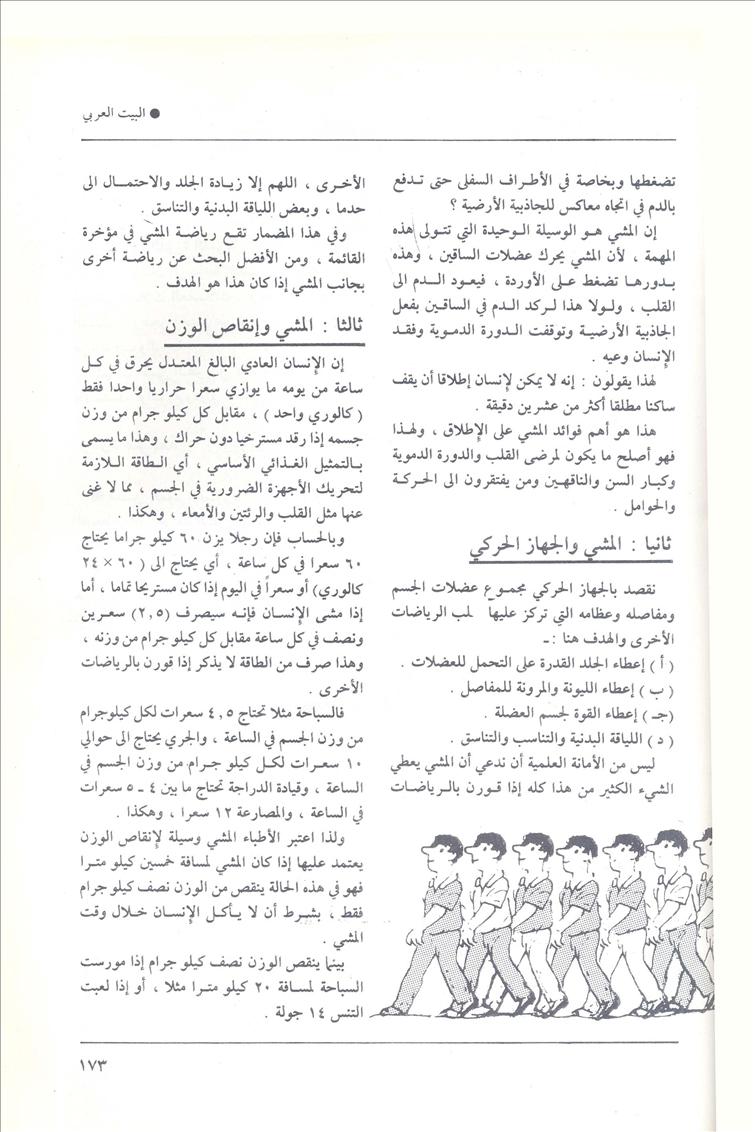 ● البيت العربي
تضغطها وبخاصة في الأطراف السفلى حتى تدفع
بالدم في اتجاه معاكس للجاذبية الأرضية ؟
إن المشي هو الوسيلة الوحيدة التي تتولى هذه
المهمة ، لأن المشي يحرك عضلات الساقين ، وهذه
بدورها تضغط على الأوردة ، فيعود الدم الى
القلب ، ولولا هذا لركد الدم في الساقين بفعل
الجاذبية الأرضية وتوقفت الدورة الدموية وفقد
الإنسان وعيه .
لهذا يقولون : إنه لا يمكن لإنسان إطلاقا أن يقف
ساكنا مطلقا أكثر من عشرين دقيقة .
هذا هو أهم فوائد المشي على الإطلاق ، ولهذا
فهو أصلح ما يكون لمرضى القلب والدورة الدموية
وكبار السن والناقهين ومن يفتقرون الى الحركة
والحوامل .
ثانيا : المشي والجهاز الحركي
نقصد بالجهاز الحركي مجموع عضلات الجسم
ومفاصله وعظامه التي تركز عليها لب الرياضات
الأخرى والهدف هنا :ـ
( أ ) إعطاء الجلد القدرة على التحمل للعضلات .
( ب ) إعطاء الليونة والمرونة للمفاصل .
(جـ ) إعطاء القوة لجسم العضلة .
( د ) اللياقة البدنية والتناسب والتناسق .
ليس من الأمانة العلمية أن ندعي أن المشي يعطي
الشيء الكثير من هذا كله إذا قورن بالرياضات
الأخرى ، اللهم إلا زيادة الجلد والاحتمال الى
حدما ، وبعض اللياقة البدنية والتناسق .
وفي هذا المضمار تقع رياضة المشي في مؤخرة
القائمة ، ومن الأفضل البحث عن رياضة أخرى
بجانب المشي إذا كان هذا هو الهدف .
ثالثا : المشي وإنقاص الوزن
إن الإنسان العادي البالغ المعتدل يحرق في كل
ساعة من يومه ما يوازي سعرا حراريا واحدا فقط
( كالوري واحد ) ، مقابل كل كيلو جرام من وزن
جسمه إذا رقد مسترخيا دون حراك ، وهذا ما يسمى
بالتمثيل الغذائي الأساسي ، أي الطاقة اللازمة
لتحريك الأجهزة الضرورية في الجسم ، مما لا غنى
عنها مثل القلب والرئتين والأمعاء ، وهكذا .
وبالحساب فإن رجلا يزن ٦٠ كيلو جراما يحتاج
٦٠ سعرا في كل ساعة ، أي يحتاج الى ( ٦٠ × ٢٤
كالوري) أو سعراً في اليوم إذا كان مستريحا تماما ، أما
إذا مشى الإنسان فإنه سيصرف (٢,٥) سعرين
ونصف في كل ساعة مقابل كل كيلو جرام من وزنه ،
وهذا صرف من الطاقة لا يذكر إذا قورن بالرياضات
الأخرى .
فالسباحة مثلا تحتاج ٤,٥ سعرات لكل كيلوجرام
من وزن الجسم في الساعة ، والجري يحتاج الى حوالي
١٠ سعرات لكل كيلو جرام من وزن الجسم في
الساعة ، وقيادة الدراجة تحتاج ما بين ٤ ـ ٥ سعرات
في الساعة ، والمصارعة ١٢ سعرا ، وهكذا .
ولذا اعتبر الأطباء المشي وسيلة لإنقاص الوزن
يعتمد عليها إذا كان المشي لمسافة خمسين كيلو مترا
فهو في هذه الحالة ينقص من الوزن نصف كيلو جرام
فقط ، بشرط أن لا يأكل الإنسان خلال وقت
المشي .
بينما ينقص الوزن نصف كيلو جرام إذا مورست
السباحة لمسافة ٢٠ كيلو مترا مثلا ، أو إذا لعبت
التنس ١٤ جولة .
١٧٣